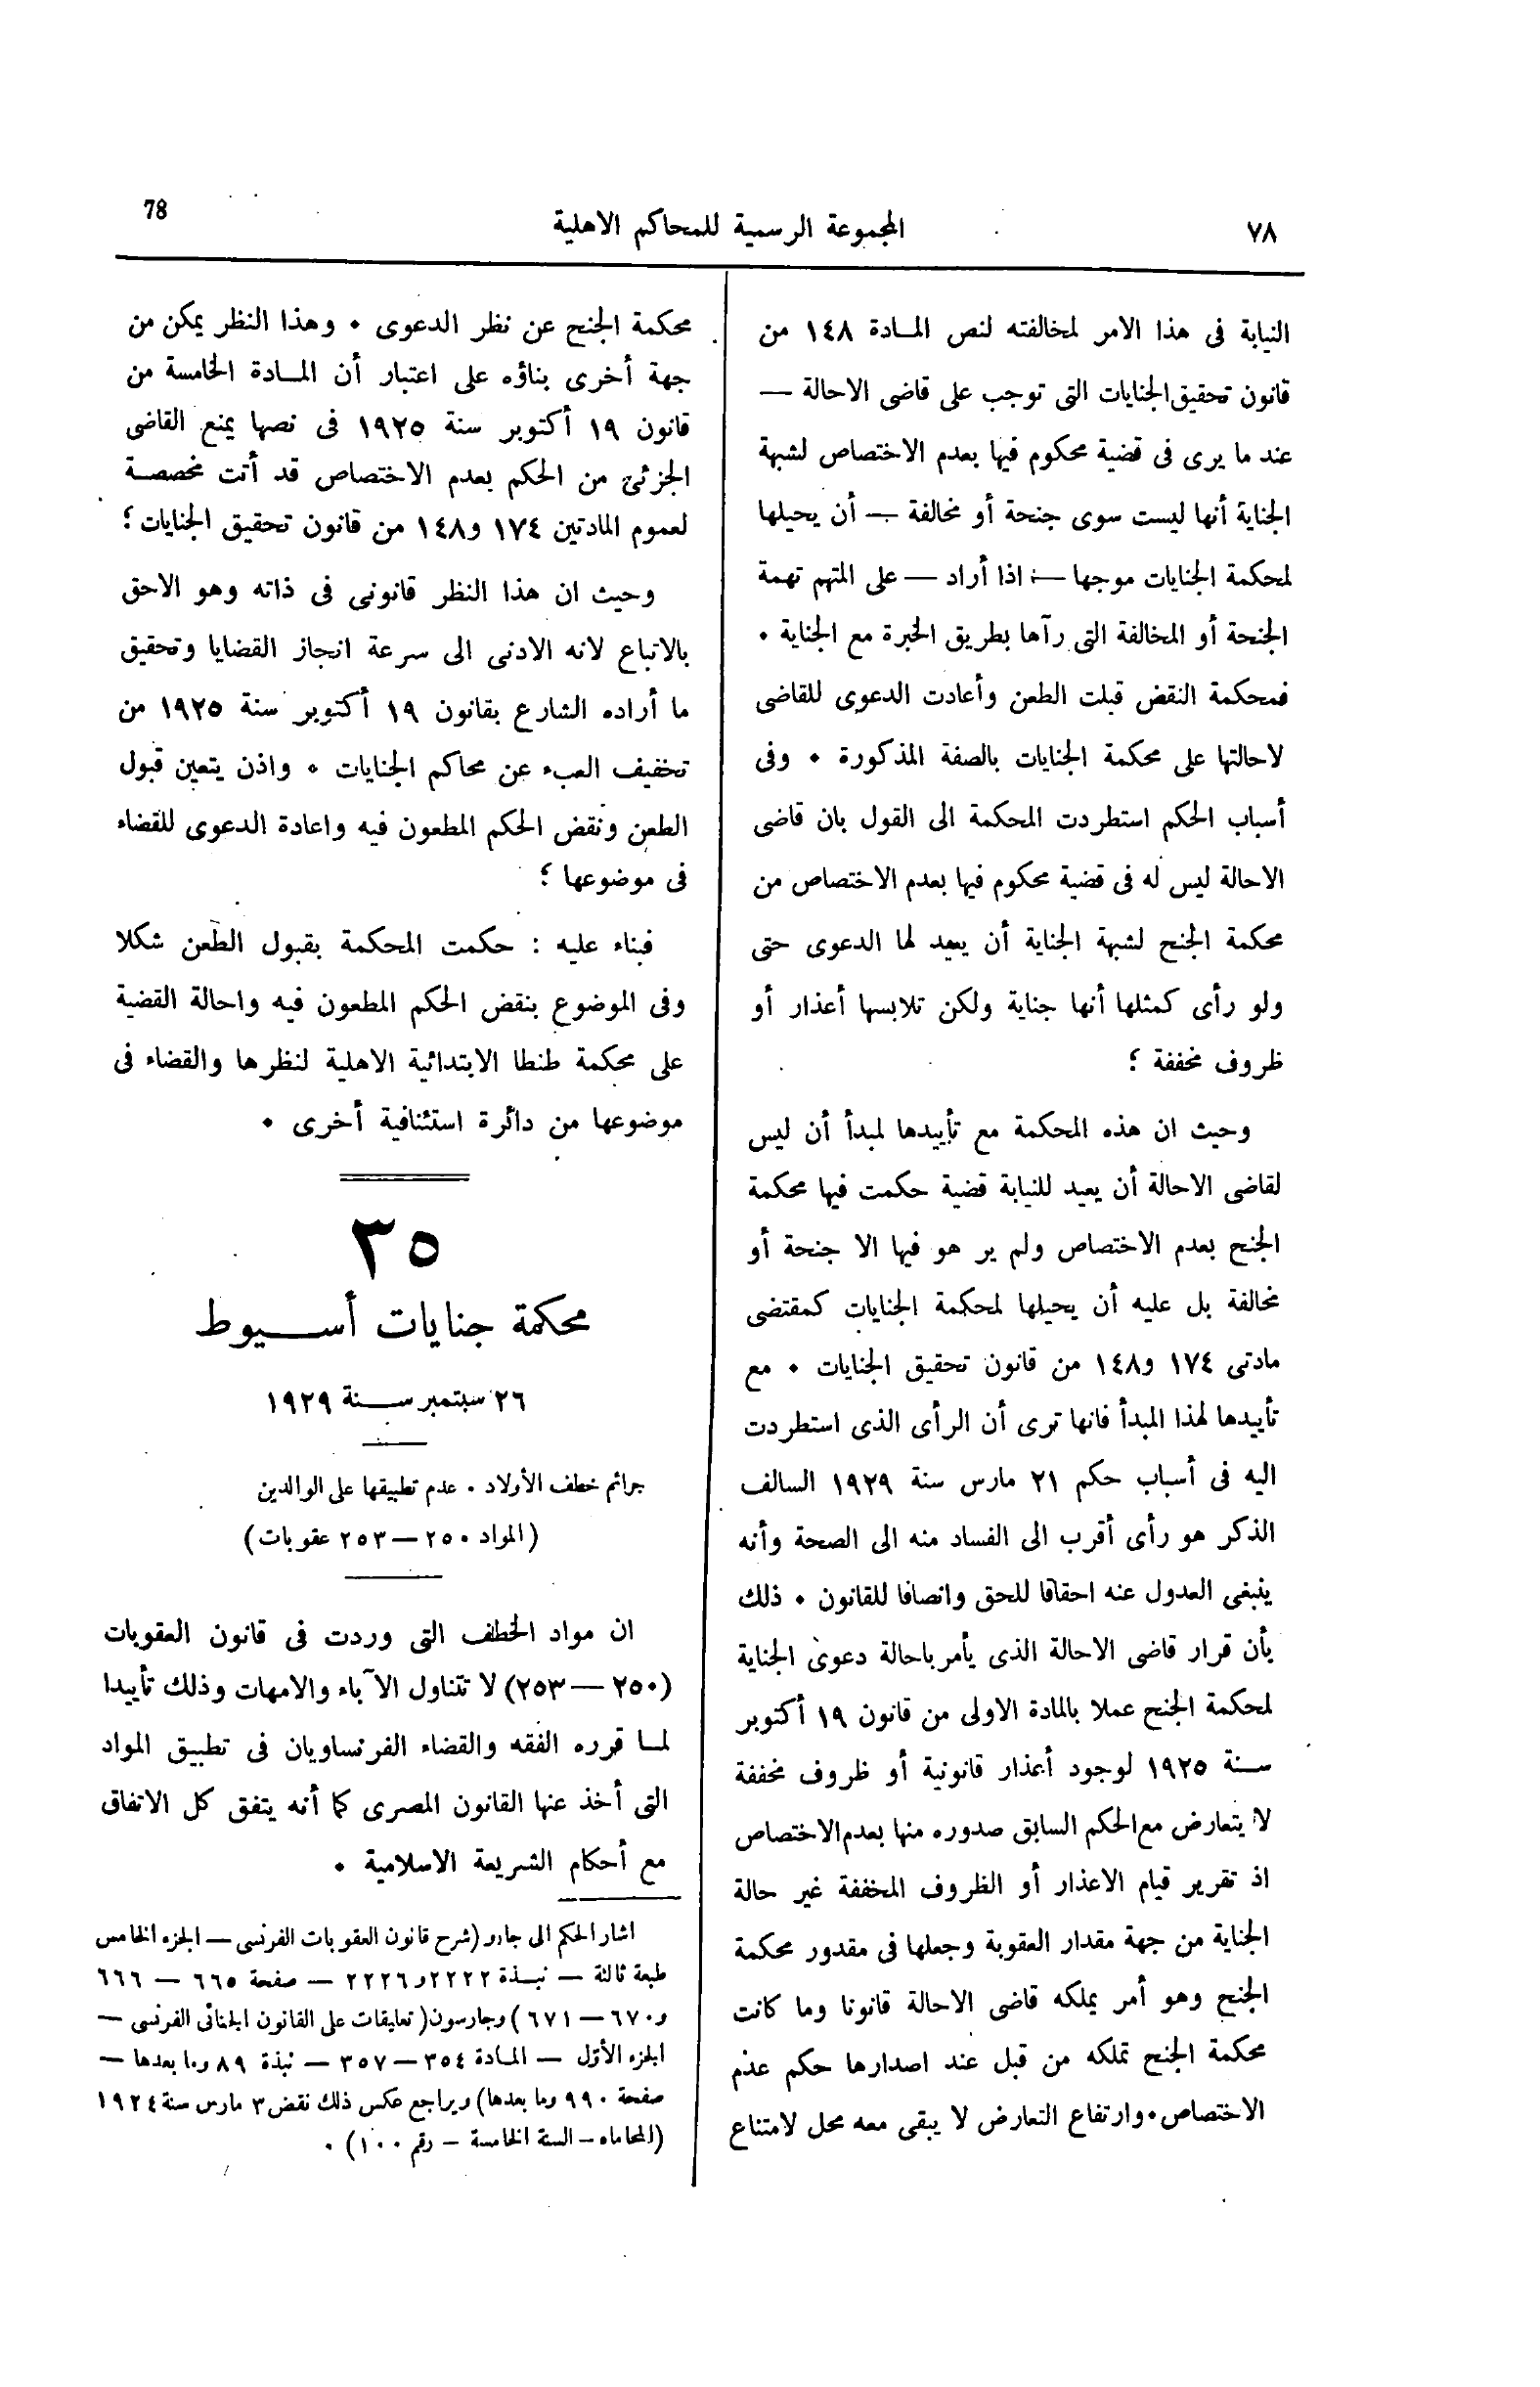 ٧٨
المجموعة الرسمية للمحاكم الاهلية
78
النيابة فى هذا الامر لمخالفته لنص المادة ١٤٨ من
قانون تحقيق الجنايات التى توجب على قاضى الاحالة —
عند ما يرى فى قضية محكوم فيها بعدم الاختصاص لشبهة
الجناية أنها ليست سوى جنحة أو مخالفة — أن يحيلها
لمحكمة الجنايات موجها — اذا أراد — على المتهم تهمة
الجنحة أو المخالفة التى رآها بطريق الخيرة مع الجناية ٠
فمحكمة النقض قبلت الطعن وأعادت الدعوى للقاضى
لاحالتها على محكمة الجنايات بالصفة المذكورة ٠ وفى
أسباب الحكم استطردت المحكمة الى القول بان قاضى
الاحالة ليس له فى قضية محكوم فيها بعدم الاختصاص من
محكمة الجنح لشبهة الجناية أن يعيد لها الدعوى حتى
ولو رأى كمثلها أنها جناية ولكن تلابسها أعذار أو
ظروف مخففة ؛
وحيث ان هذه المحكمة مع تأييدها لمبدأ أن ليس
لقاضى الاحالة أن يعيد للنيابة قضية حكمت فيها محكمة
الجنح بعدم الاختصاص ولم ير هو فيها الا جنحة أو
مخالفة بل عليه أن يحيلها لمحكمة الجنايات كمقتضى
مادتى ١٧٤ و١٤٨ من قانون تحقيق الجنايات ٠ مع
تأييدها لهذا المبدأ فانها ترى أن الرأى الذى استطردت
اليه فى أسباب حكم ٢١ مارس سنة ١٩٢٩ السالف
الذكر هو رأى أقرب الى الفساد منه الى الصحة وأنه
ينبغى العدول عنه احقاقا للحق وانصافا للقانون ٠ ذلك
بأن قرار قاضى الاحالة الذى يأمر باحالة دعوى الجناية
لمحكمة الجنح عملا بالمادة الاولى من قانون ١٩ أكتوبر
سنة ١٩٢٥ لوجود أعذار قانونية أو ظروف مخففة
لا يتعارض مع الحكم السابق صدوره منها بعدم الاختصاص
اذ تقرير قيام الاعذار أو الظروف المخففة غير حالة
الجناية من جهة مقدار العقوبة وجعلها فى مقدور محكمة
الجنح وهو أمر يملكه قاضى الاحالة قانونا وما كانت
محكمة الجنح تملكه من قبل عند اصدارها حكم عدم
الاختصاص٠ وارتفاع التعارض لا يبقى معه محل لامتناع
محكمة الجنح عن نظر الدعوى ٠ وهذا النظر يمكن من
جهة أخرى بناؤه على اعتبار أن المادة الخامسة من
قانون ١٩ أكتوبر سنة ١٩٢٥ فى نصها يمنع القاضى
الجزئى من الحكم بعدم الاختصاص قد أتت مخصصة
لعموم المادتين ١٧٤ و١٤٨ من قانون تحقيق الجنايات ؛
وحيث ان هذا النظر قانونى فى ذاته وهو الاحق
بالاتباع لانه الادنى الى سرعة انجاز القضايا وتحقيق
ما أراده الشارع بقانون ١٩ أكتوبر سنة ١٩٢٥ من
تخفيف العبء عن محاكم الجنايات ٠ واذن يتعين قبول
الطعن ونقض الحكم المطعون فيه واعادة الدعوى للقضاء
فى موضوعها ؛
فبناء عليه : حكمت المحكمة بقبول الطعن شكلا
وفى الموضوع بنقض الحكم المطعون فيه واحالة القضية
على محكمة طنطا الابتدائية الاهلية لنظرها والقضاء فى
موضوعها من دائرة استئنافية أخرى ٠
٣٥
محكمة جنايات أسيوط
٢٦ سبتمبر سنة ١٩٢٩
جرائم خطف الأولاد ٠ عدم تطبيقها على الوالدين
(المواد ٢٥٠ — ٢٥٣ عقوبات)
ان مواد الخطف التى وردت فى قانون العقوبات
(٢٥٠ — ٢٥٣) لا تتناول الآباء والامهات وذلك تأييدا
لما قرره الفقه والقضاء الفرنساويان فى تطبيق المواد
التى أخذ عنها القانون المصرى كما أنه يتفق كل الاتفاق
مع أحكام الشريعة الاسلامية ٠
اشار الحكم الى جارو (شرح قانون العقوبات الفرنسى — الجزء الخامس
طبعة ثالثة — نبذة ٢٢٢٢ و٢٢٢٦ — صفحة ٦٦٥ — ٦٦٦
و٦٧٠ — ٦٧١) وجارسون (تعليقات على القانون الجنائى الفرنسى —
الجزء الأول — المادة ٣٥٤ — ٣٥٧ — نبذة ٨٩ وما بعدها —
صفحة ٩٩٠ وما بعدها) ويراجع عكس ذلك نقض ٣ مارس سنة ١٩٢٤
(المحاماه — السنة الخامسة — رقم ١٠٠) ٠